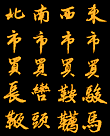 東市買駿馬
西市買鞍韉
南市買轡頭
北市買長鞭